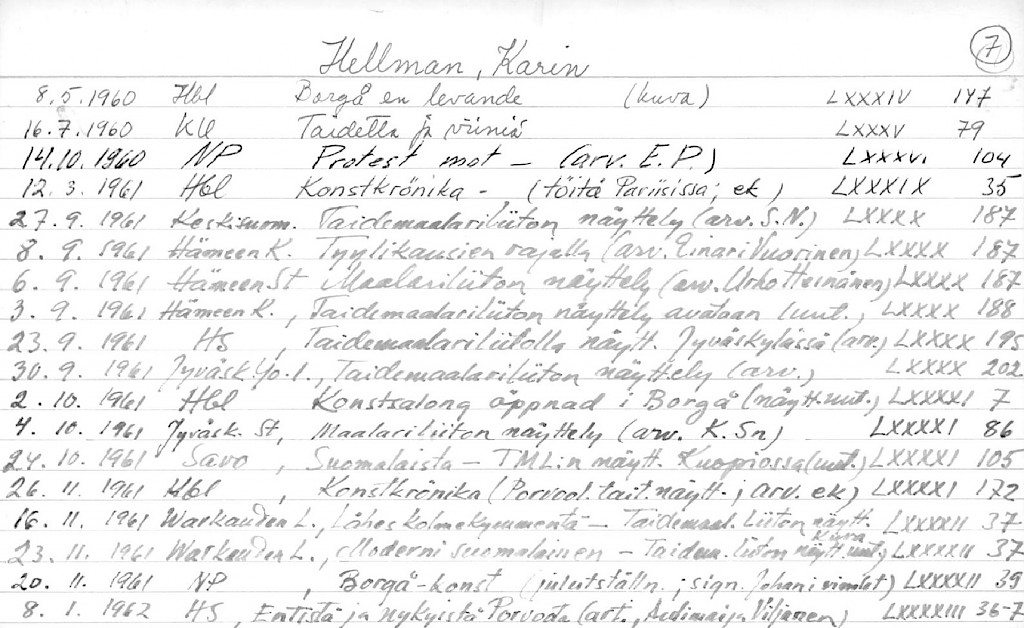 7
Hellman, Karin
8.5.1960 Hbl Borgå en levande (kuva) LXXXIV 147
16.7.1960 KU Taidetta ja viiniä LXXXV 79
14.10.1960 NP Protest mot - (arv. E.P.) LXXXVI 104
12.3.1961 Hbl Konstkrönika - (töitä Pariisissa; ek) LXXXIX 35
27.9.1961 Keskisuom. Taidemaalariliiton näyttely (arv. S.N.) LXXXX 187
8.9.1961 Hämeen K. Tyylikausien rajalla (arv. Einari Vuorinen) LXXXX 187
6.9.1961 Hämeen St Maalariliiton näyttely (arv. Urho Heinänen) LXXXX 187
3.9.1961 Hämeen K., Taidemaalariliiton näyttely avataan (uut.) LXXXX 188
23.9.1961 HS, Taidemaalariliitolla näytt. Jyväskylässä (arv.) LXXXX 195
30.9.1961 Jyväsk. Yo.l., Taidemaalariliiton näyttely (arv.) LXXXX 202
2.10.1961 Hbl Konstsalong öppnad i Borgå (näytt. uut.) LXXXXI 7
4.10.1961 Jyväsk. St, Maalariliiton näyttely (arv. K. Sn) LXXXXI 86
24.10.1961 Savo, Suomalaista - TML:n näytt. Kuopiossa (uut.) LXXXXI 105
26.11.1961 Hbl, Konstkrönika (Porvool. tait. näytt.; arv. ek) LXXXXI 172
16.11.1961 Warkauden L., Lähes kolmekymmentä - Taidemaal. liiton näytt. LXXXXII 37
23.11.1961 Warkauden L., Moderni suomalainen - Taidem. liiton näytt. uut.) kuva LXXXXII 37
20.11.1961 NP, Borgå-konst (julutställn.; sign. LXXXXII 39
8.1.1962 HS, Entistä ja nykyistä Porvoota (art. Aulimaija Viljanen) LXXXXIII 36-7